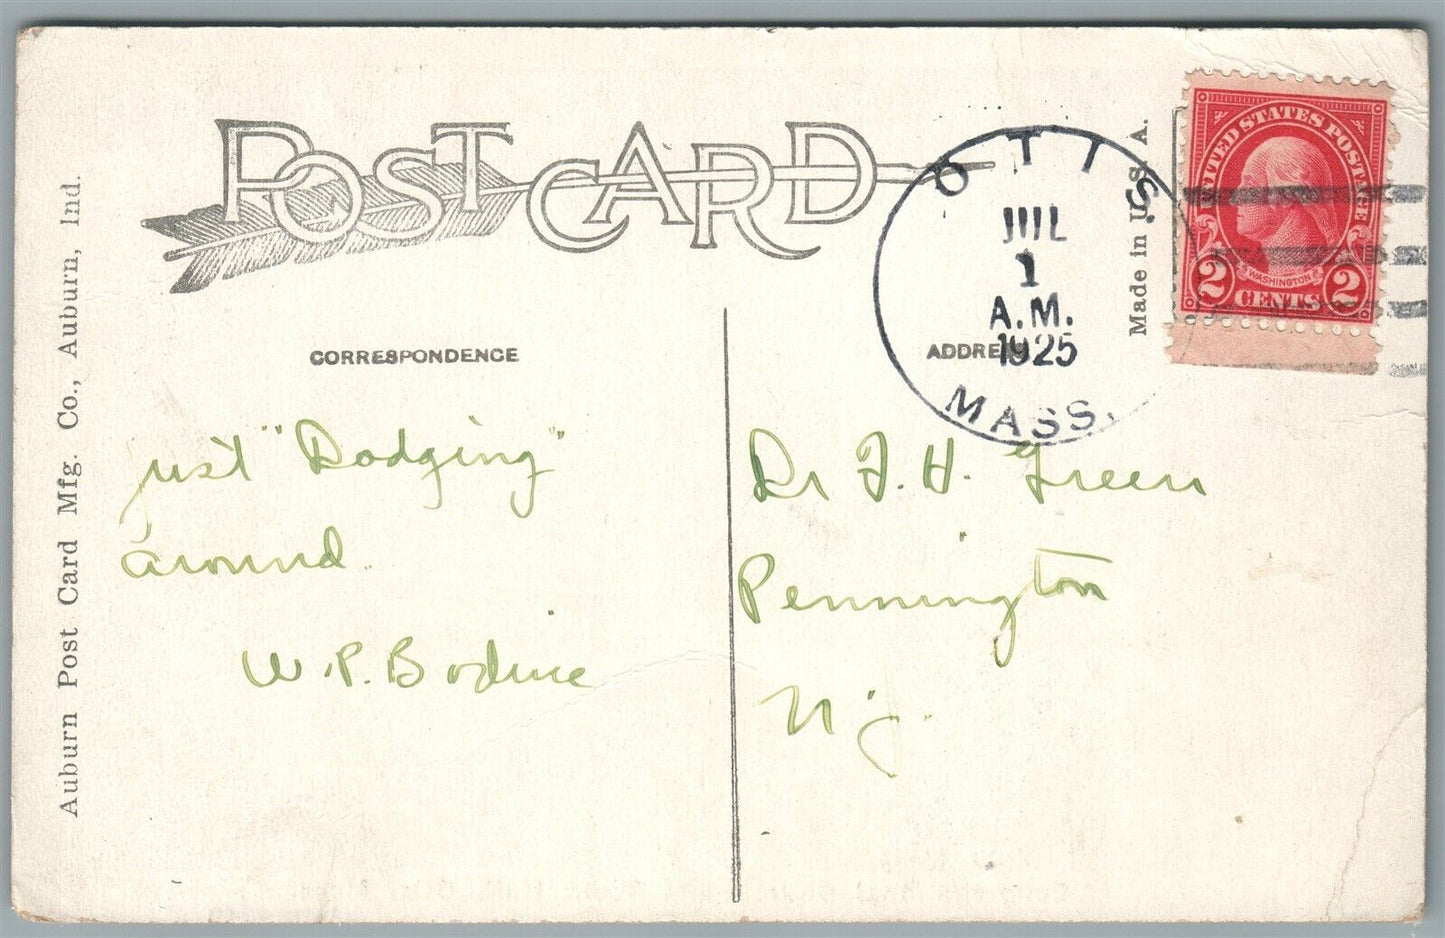 POST CARD
Auburn Post Card Mfg. Co., Auburn, Ind.
CORRESPONDENCE
ADDRE
Made in U. S. A.
OTIS
JUL
1
A.M.
1925
MASS.
UNITED STATES POSTAGE
WASHINGTON
2 CENTS 2
just "Dodging"
around.
W.P. Bodine
Dr F. H. Green
Pennington
N. J.